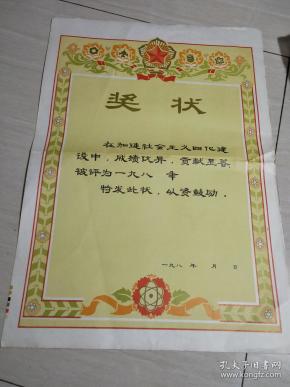 奖状
在加速社会主义四化建
设中，成绩优异，贡献显著
被评为一九八 年
特发此状，以资鼓励．
一九八 年 月 日
孔夫子旧书网